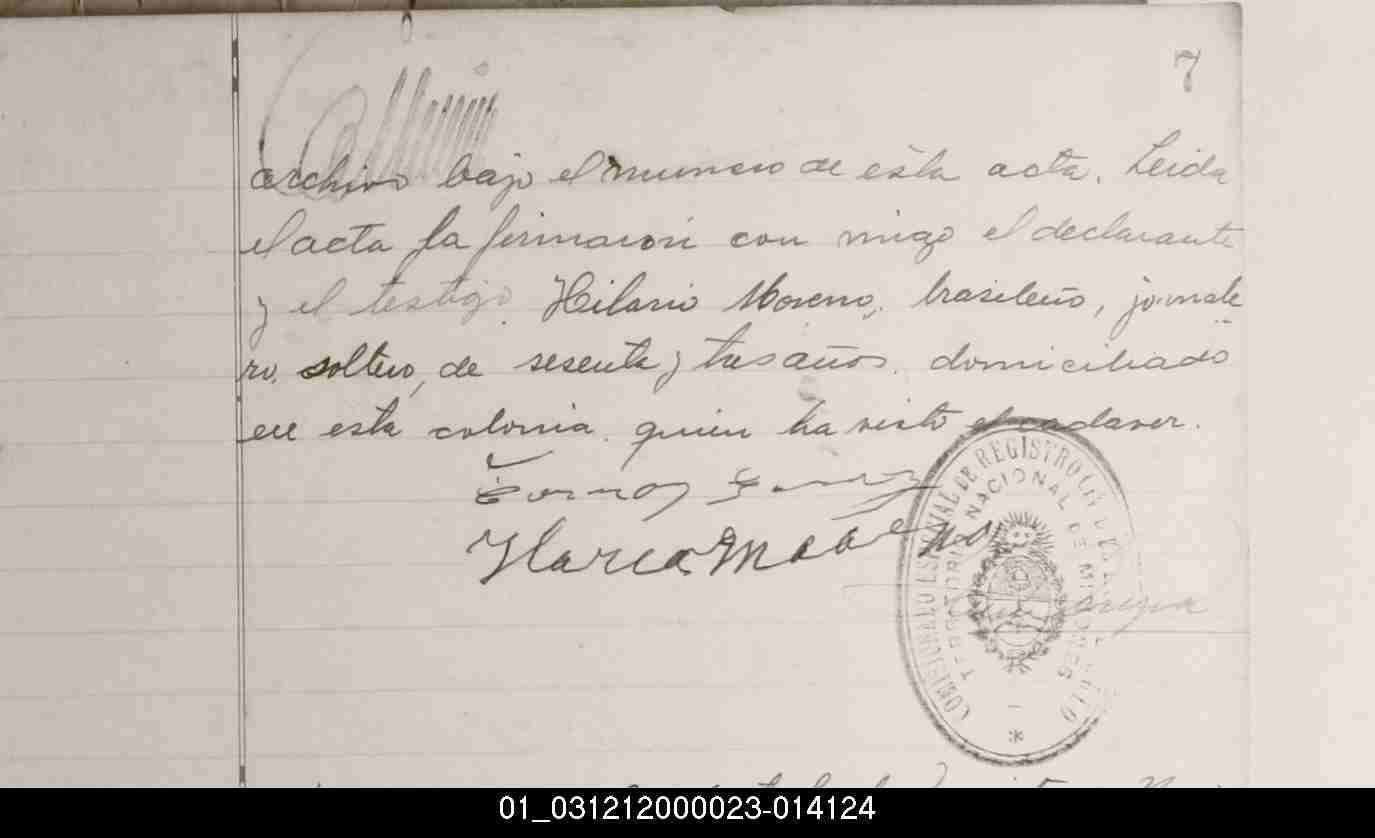 7
archivo bajo el numero de esta acta. Leida
el acta la firmaron con migo el declarante
y el testigo Hilario Moreno, brasileño, jornale
ro, soltero, de sesenta y tres años, domiciliado
en esta colonia, quien ha visto el cadaver.
COMISIONADO ESPECIAL DE REGISTRO CIVIL
TERRITORIO NACIONAL DE MISIONES
01_031212000023-014124